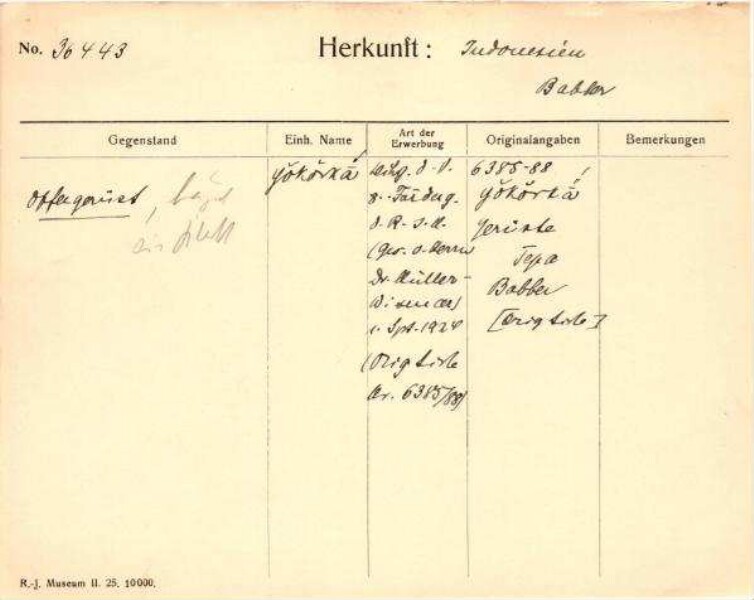 No. 36443
Herkunft: Indonesien
Babber
Gegenstand
Einh. Name
Art der Erwerbung
Originalangaben
Bemerkungen
Opfergerüst,
yŏkŏrkā
d. V.
z. Förderg.
d. R-J-M.
(Ges. d. Herrn
Dr. Müller-
Wismar)
1. Sept. 1924
(Origliste
Nr. 6385/88)
6385-88
yŏkŏrkā
Gerüste
Tepa
Babber
[Origliste]
R.-J. Museum II. 25. 10000.